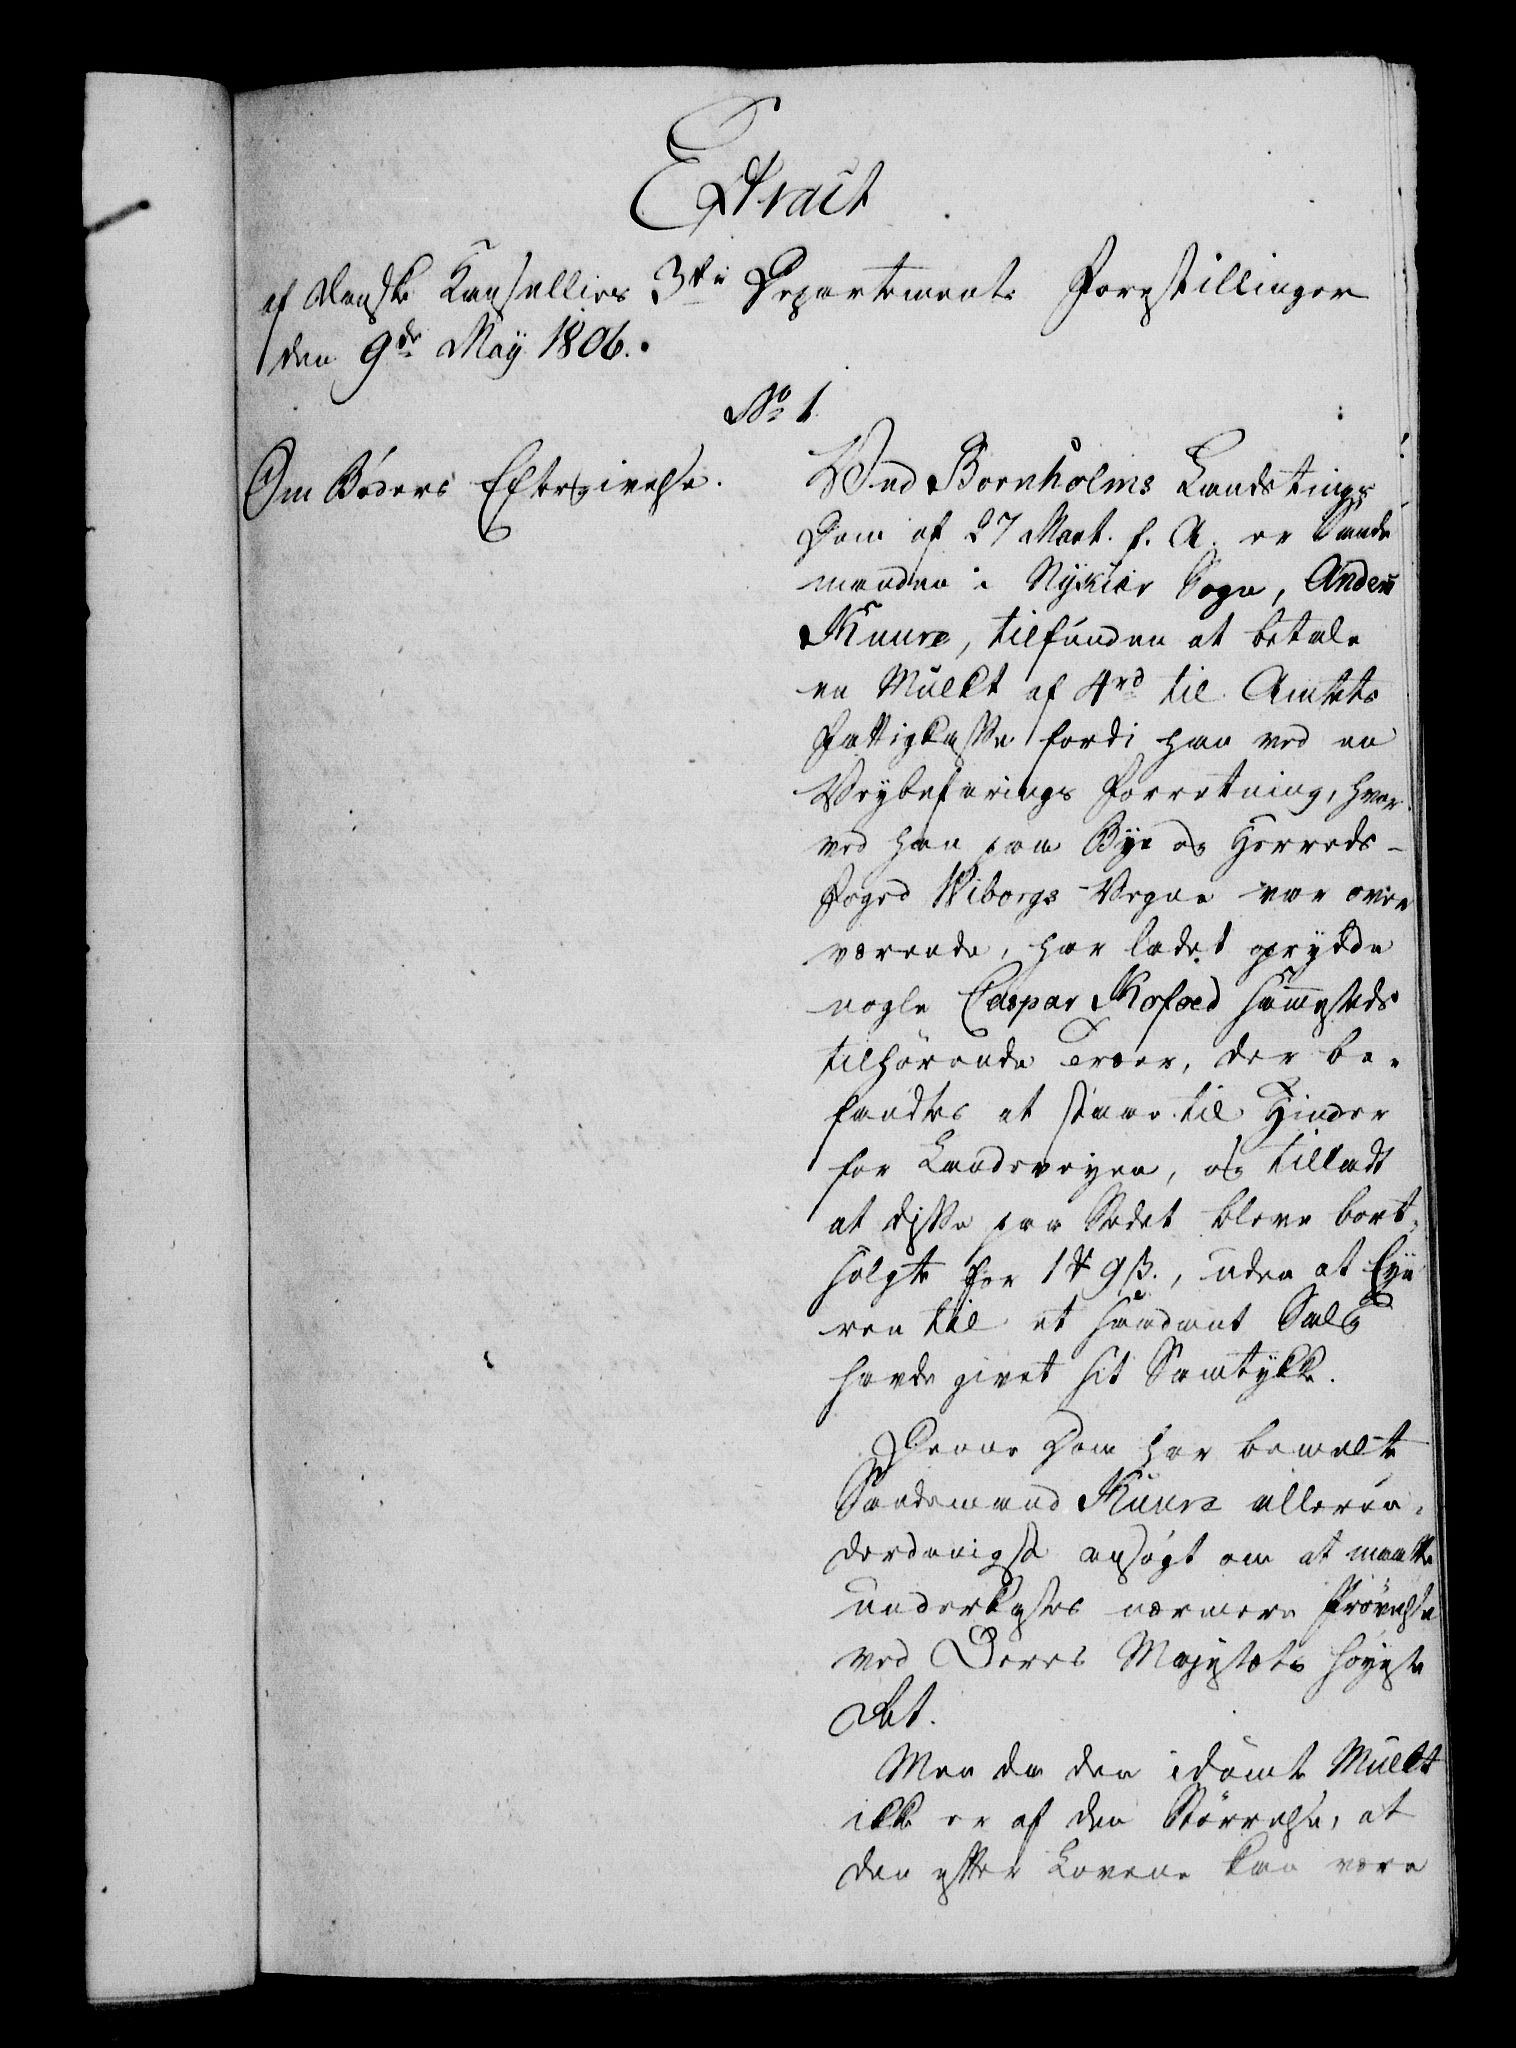 Extract
af Danske Kancelliets 3die Departements Forestillinger
den 9de May 1806.
No 1
Om Bøders Eftergivelse.
Ved Bornholms Landstings
Dom af 27 Mart. f. A. er Sande
manden i Nykier Sogn, Anders
Kuure, tilfunden at betale
en Mulkt af 4rd til Amtets
Fattigkasse fordi han ved en
Veybesigtings Forretning, hvor
ved han paa Bye og Herreds-
foged Wiborgs Vegne var over
værende, har ladet oprydde
nogle Caspar Kofoed sammesteds
tilhørende Træer, der be-
fandtes at staae til Hinder
for Landeveyen, og tilladt
at disse paa Stedet bleve bort-
solgte for 1 # 9 ß., uden at Eye
ren til et saadant Salg
havde givet sit Samtykke.
Denne Dom har bemelte
Sandemand Kuure allerun-
derdanigst ansøgt om at maatte
underkastes nærmere Prøvelse
ved Deres Majestæts høyeste
Ret.
Men da den idømte Mulkt
ikke er af den Størrelse, at
den efter Lovene kan være